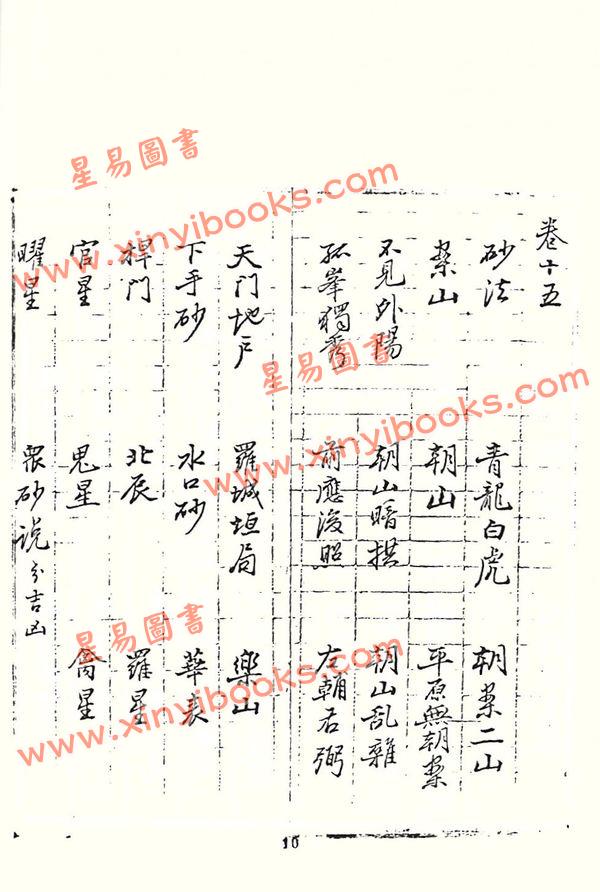 卷十五
砂法 青龍白虎 朝案二山
案山 朝山 平原無朝案
不見外陽 朝山暗拱 朝山乱雜
孤峯獨秀 前應後照 左輔右弼
天门地户 羅城垣局 樂山
下手砂 水口砂 華表
捍門 北辰 羅星
官星 鬼星 禽星
曜星 眾砂说分吉凶
10
星易圖書
www.xinyibooks.com
星易圖書
www.xinyibooks.com
星易圖書
www.xinyibooks.com